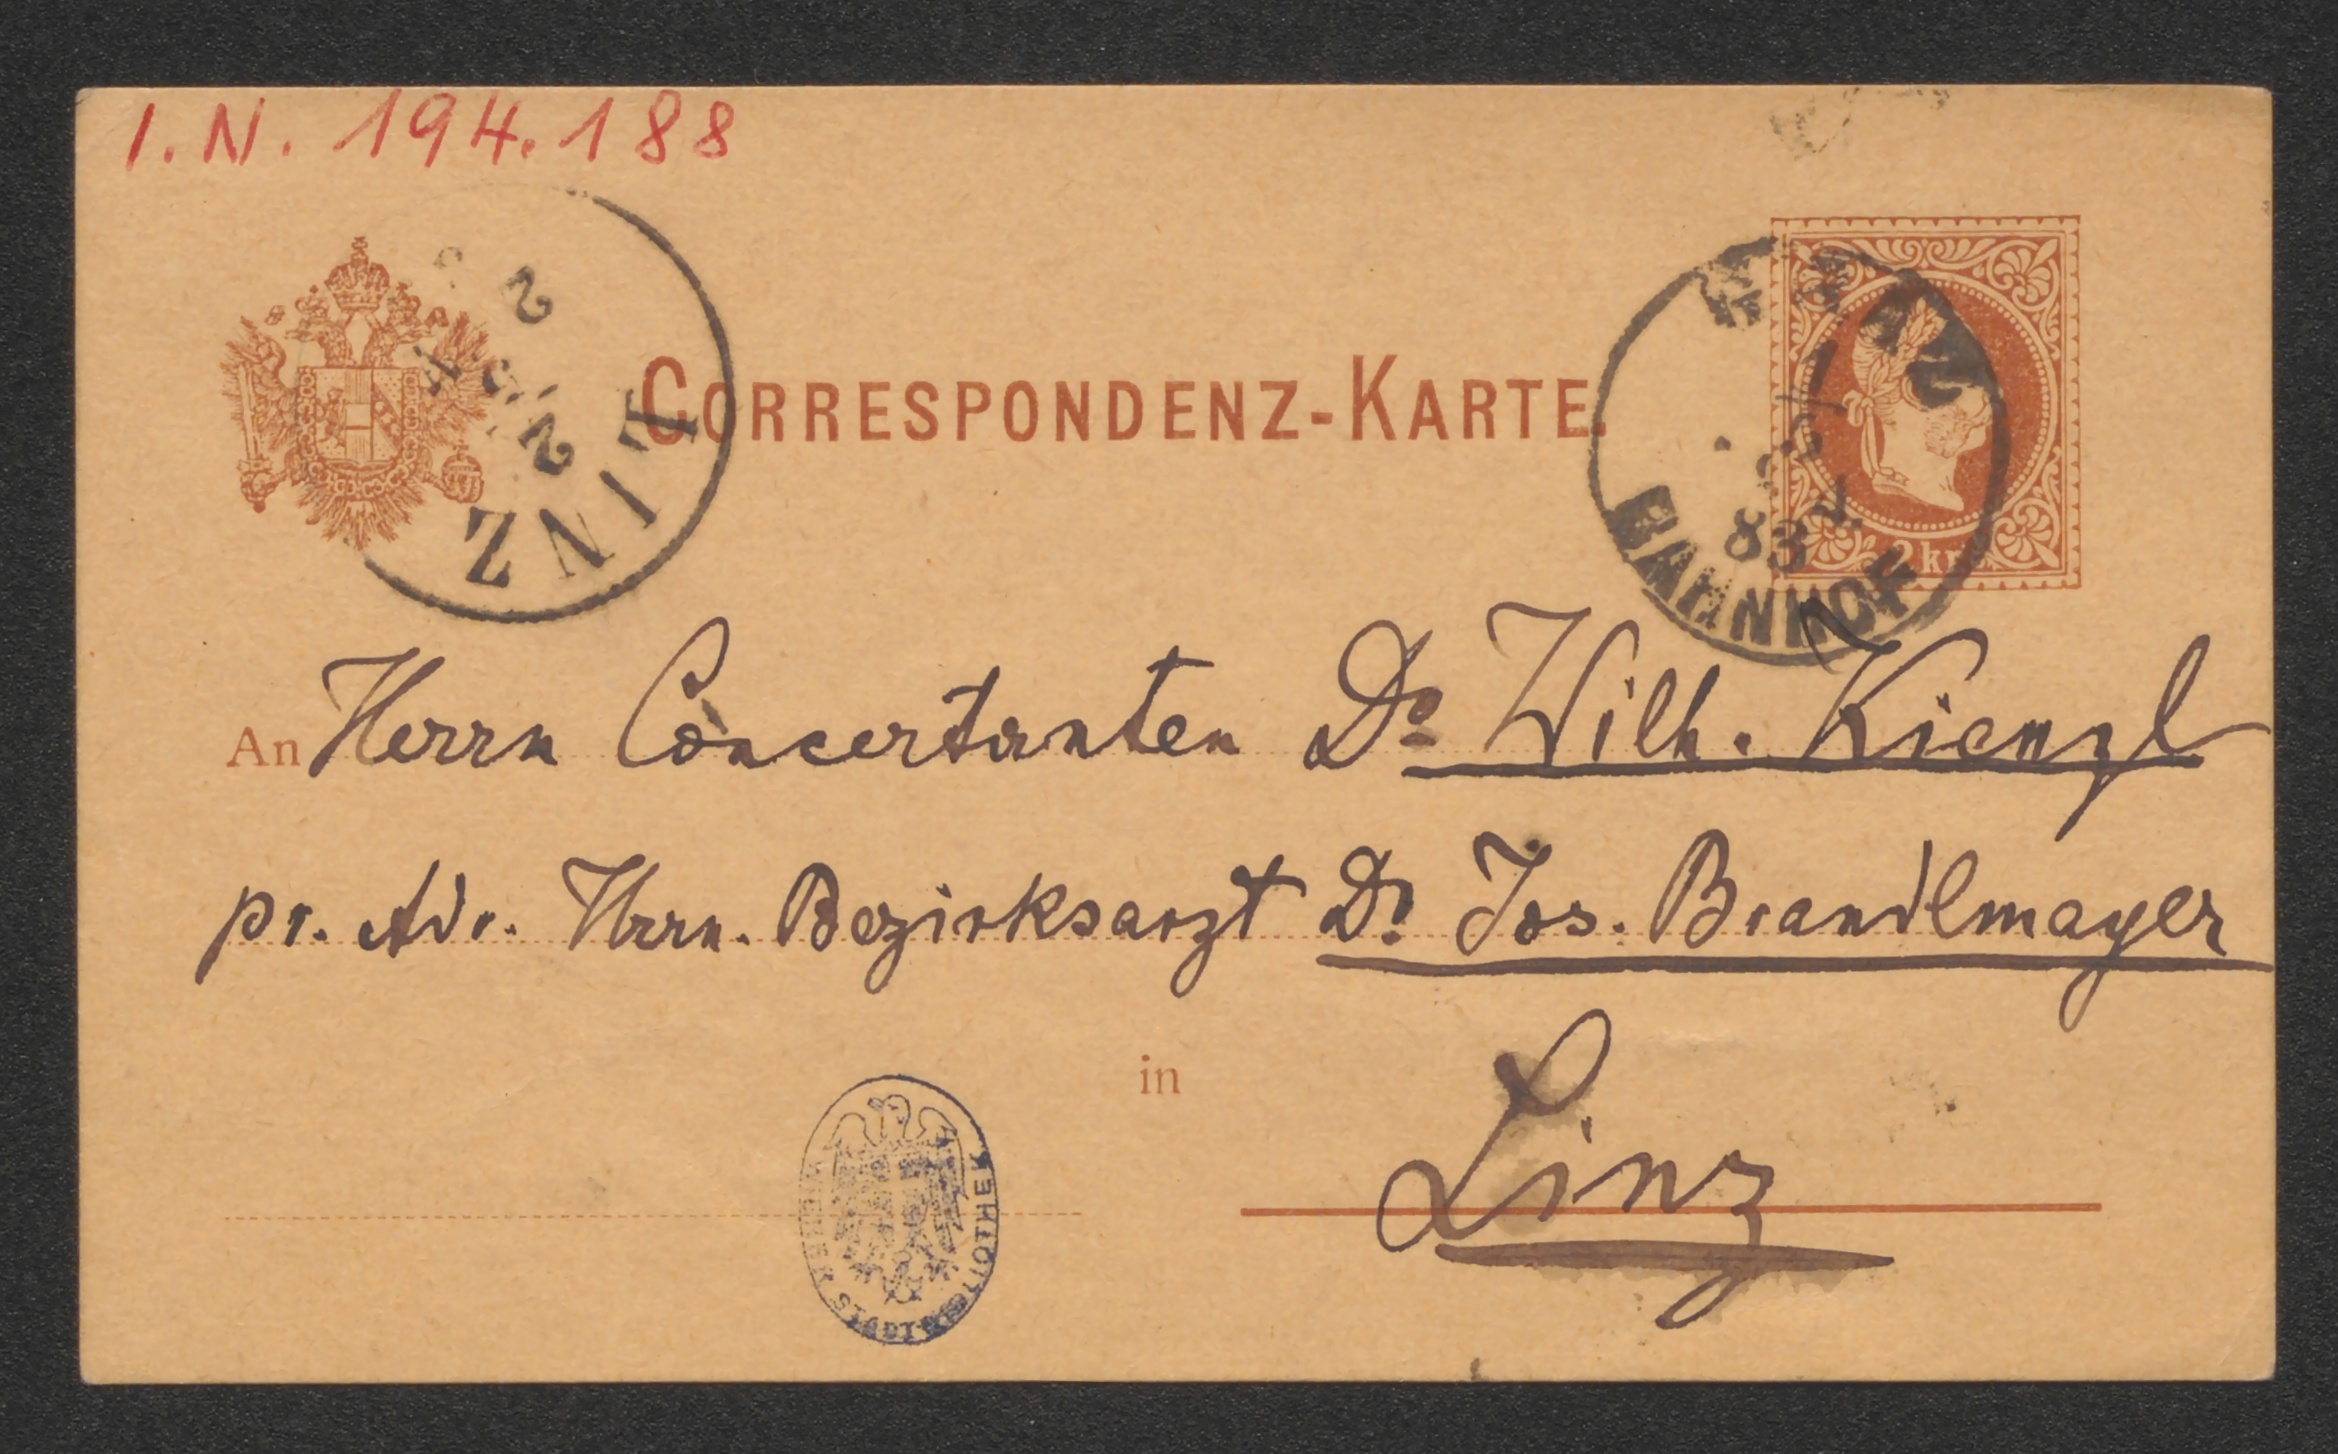 I.N. 194.188
CORRESPONDENZ-KARTE.
LINZ
GRAZ
83
BAHNHOF
2 kr.
An Herrn Concertanten Dr. Wilh. Kienzl
pr. Adr. Hrrn. Bezirksarzt Dr. Jos. Brandlmayer
in
Linz
STADTBIBLIOTHEK